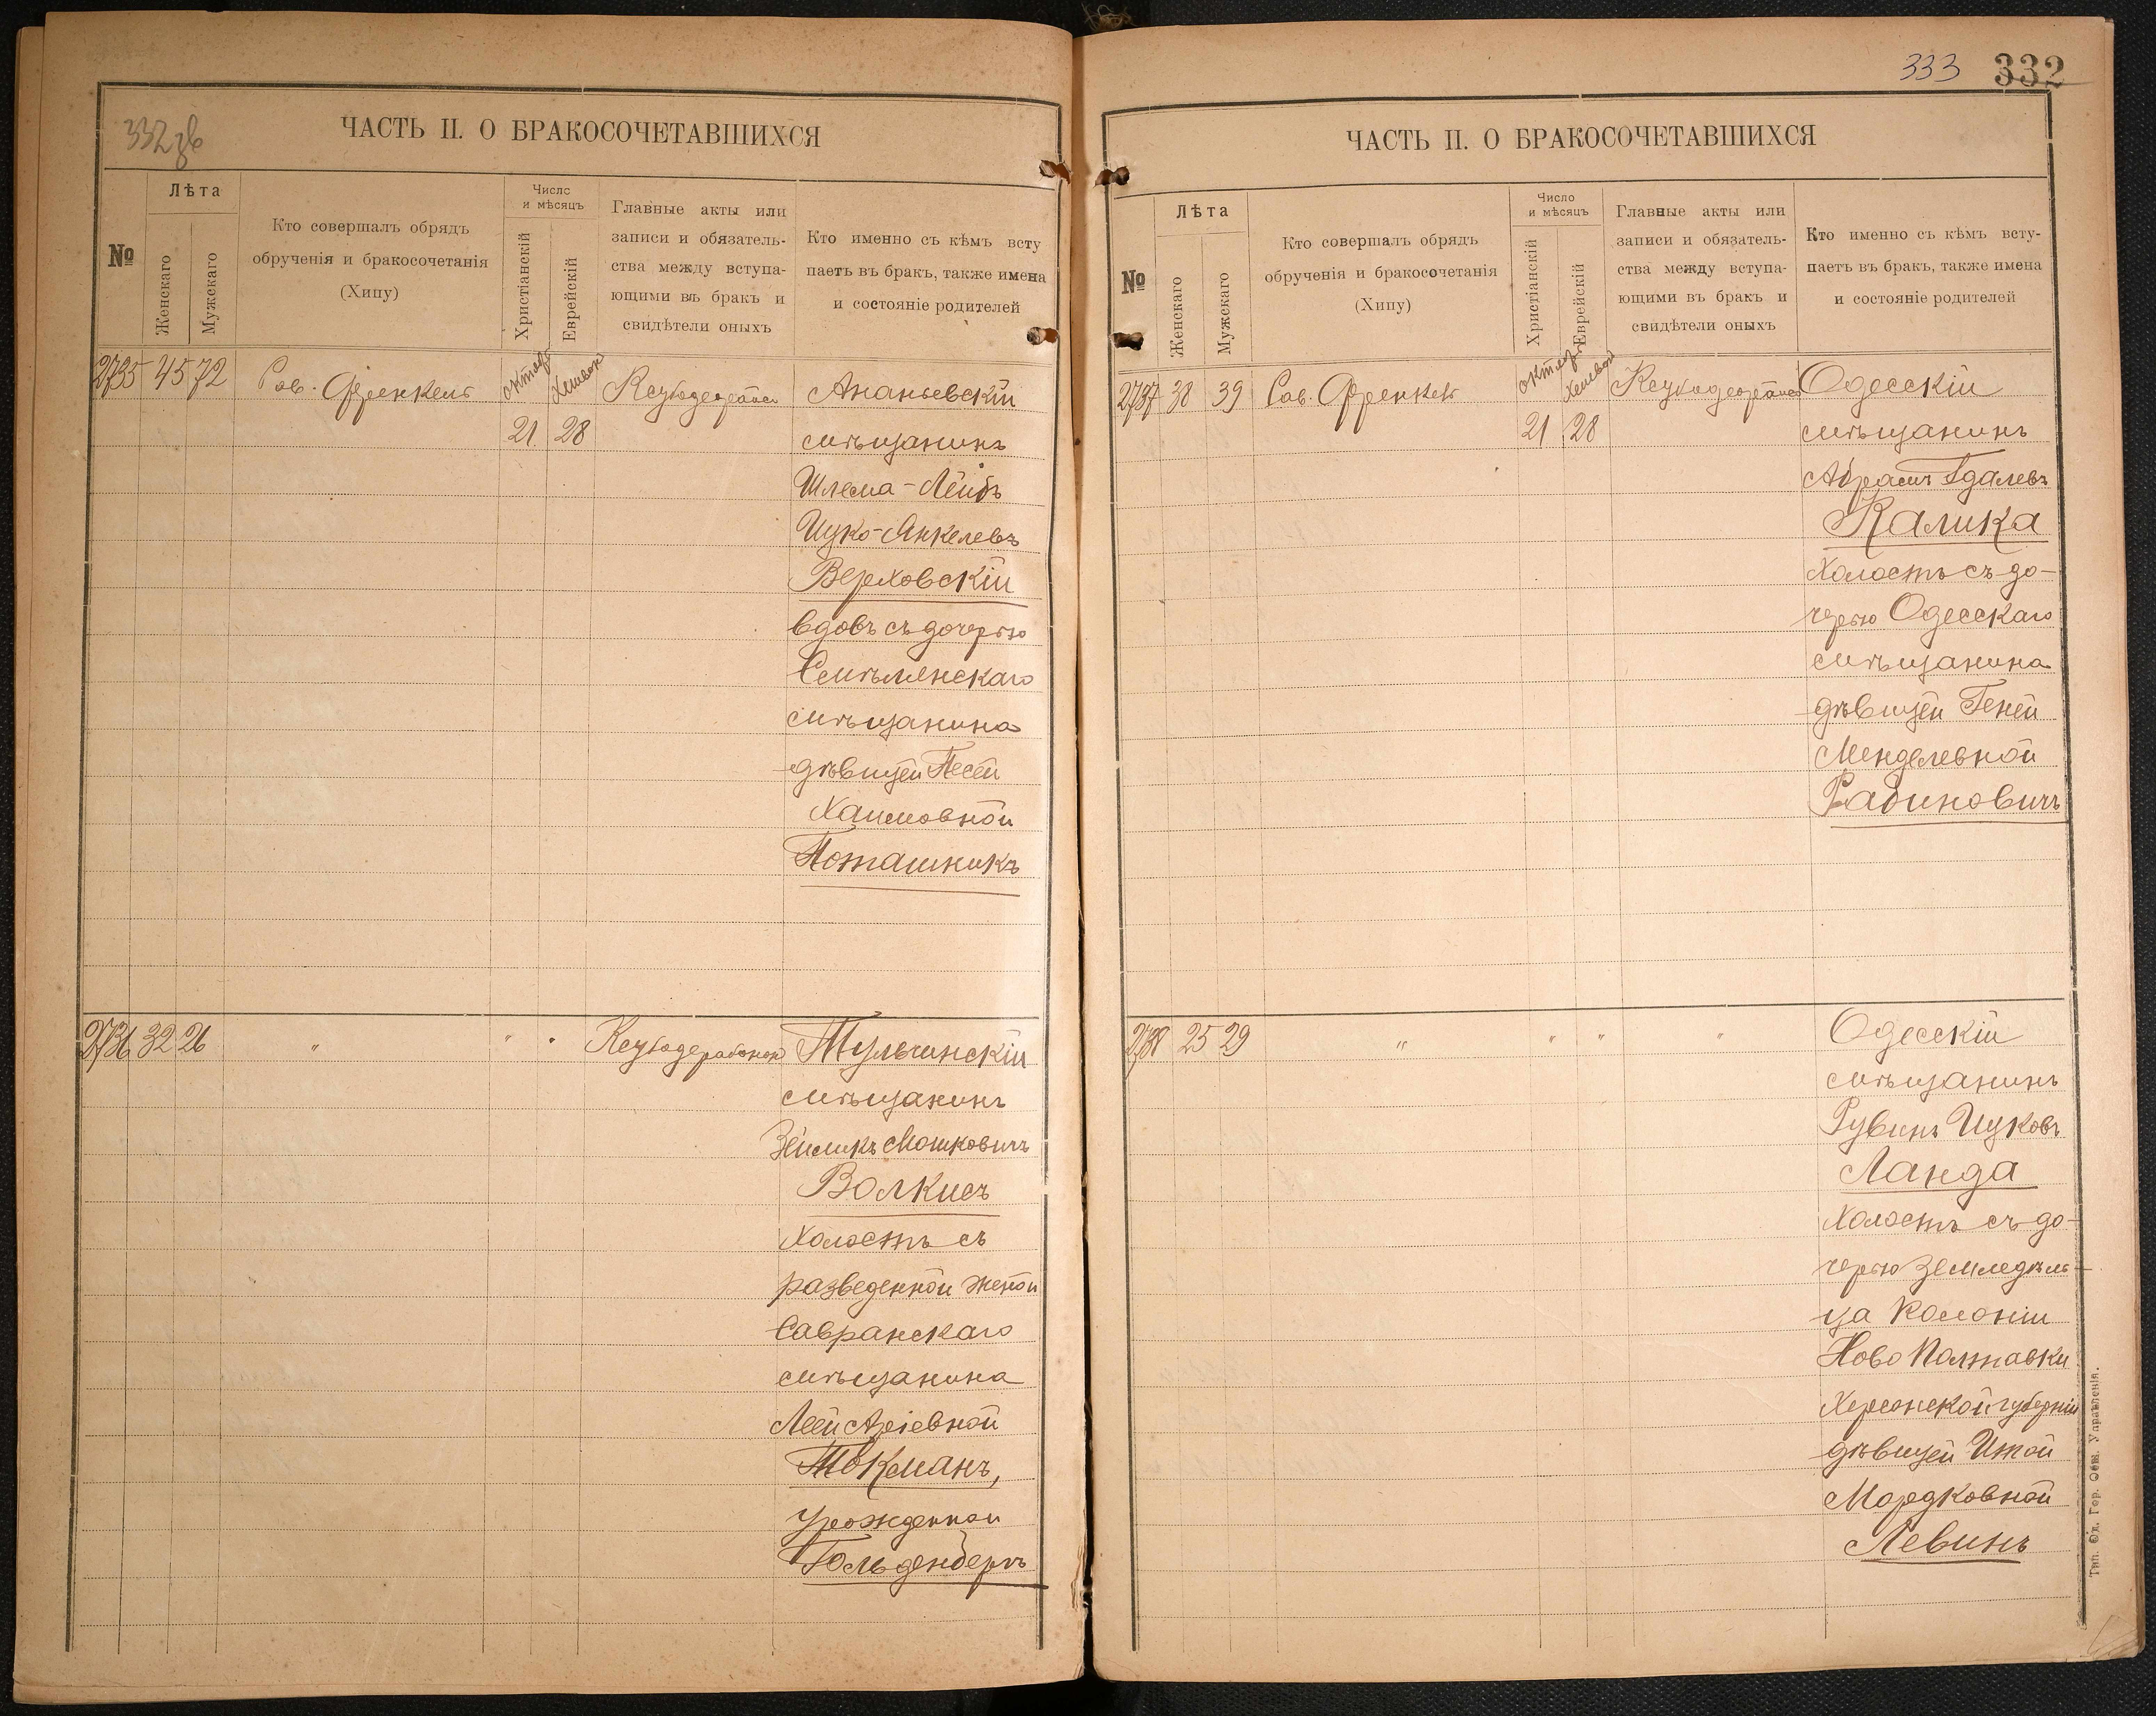 332 зв
ЧАСТЬ II. О БРАКОСОЧЕТАВШИХСЯ
№
Лѣта
Женскаго
Мужскаго
Кто совершалъ обрядъ
обрученія и бракосочетанія
(Хипу)
Число
и мѣсяцъ
Христіанскій
Еврейскій
Главные акты или
записи и обязатель-
ства между вступа-
ющими въ бракъ и
свидѣтели оныхъ
Кто именно съ кѣмъ всту
паетъ въ бракъ, также имена
и состояніе родителей
2735 45 72 Рав. Френкель Ананьевскій
21 28 мѣщанинъ
Шлема-Лейбъ
Ицко-Янкелевъ
Верховскій
вдовъ съ дочерью
Смѣлянскаго
мѣщанина
дѣвицей Песей
Хаимовной
Поташникъ
2736 32 26 " " " Тульчинскій
мѣщанинъ
Зейликъ Мошковичъ
Волкисъ
холостъ съ
разведенной женой
Савранскаго
мѣщанина
Леей Аріевной
Токманъ,
урожденной
Гольденбергъ
333 332
ЧАСТЬ II. О БРАКОСОЧЕТАВШИХСЯ
№
Лѣта
Женскаго
Мужскаго
Кто совершалъ обрядъ
обрученія и бракосочетанія
(Хипу)
Число
и мѣсяцъ
Христіанскій
Еврейскій
Главные акты или
записи и обязатель-
ства между вступа-
ющими въ бракъ и
свидѣтели оныхъ
Кто именно съ кѣмъ всту-
паетъ въ бракъ, также имена
и состояніе родителей
2737 38 39 Рав. Френкель Одесскій
21 28 мѣщанинъ
Абрамъ Гдалевъ
Калика
холостъ съ до-
черью Одесскаго
мѣщанина
дѣвицей Геней
Менделевной
Рабиновичъ
2738 25 29 " " " " Одесскій
мѣщанинъ
Рувинъ Ицковъ
Ланда
холостъ съ до-
черью земледѣль-
ца колоніи
Ново Полтавки
Херсонской губерніи
дѣвицей Итой
Мордковной
Левинъ
Тип. Од. Гор. Общ. Управленія.